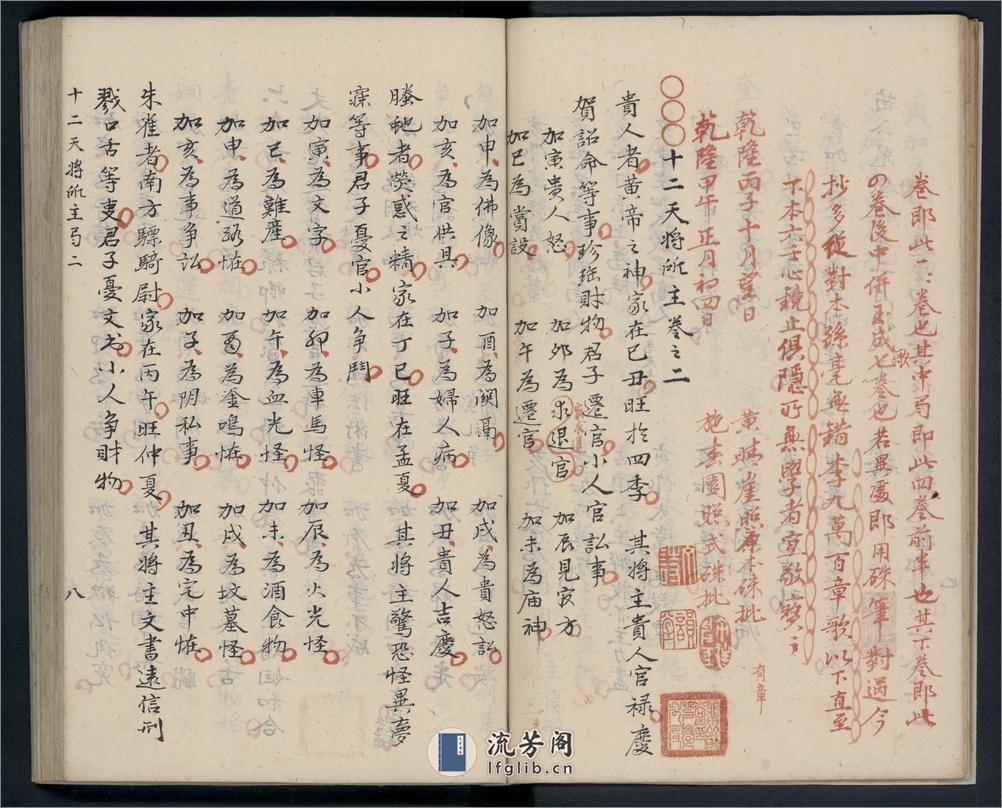 卷即此一二卷也其十局即此四卷前半也其下卷即此
の卷後中併玉成歌七卷也若異處即用硃筆對過今
抄多從對本孫毫無錯李九萬百章歌以下直至
下本六壬心鏡止俱隱所無學者宜敬寶之
乾隆丙子十月望日 黃畴崖照原本硃批
乾隆甲午正月初四日 施春園照式硃批
有章
〇〇〇十二天将所主 卷之二
貴人者黃帝之神家在巳丑旺於四季 其将主貴人官禄慶
賀詔命等事珍瑶財物君子遷官小人官訟事
加寅貴人怒 加夘為求退官 加辰見寃方
加巳為賞設 加午為遷官 加未為庙神
加申為佛像 加酉為鬬鬲 加戌為貴怒訟
加亥為官供具 加子為婦人病 加丑貴人吉慶
螣虵者熒惑之精家在丁巳旺在孟夏 其将主驚恐怪異夢
寐等事君子憂官小人争鬥
加寅為文字 加夘為車馬怪 加辰為火光怪
加巳為難産 加午為血光怪 加未為酒食物
加申為道路怪 加酉為釜鳴怪 加戌為坟墓怪
加亥為事争訟 加子為阴私事 加丑為宅中怪
朱雀者南方驃騎尉家在丙午旺仲夏 其将主文書遠信刑
戮口舌等叓君子憂文书小人争財物
十二天将所主局二 八
流芳阁
lfglib.cn